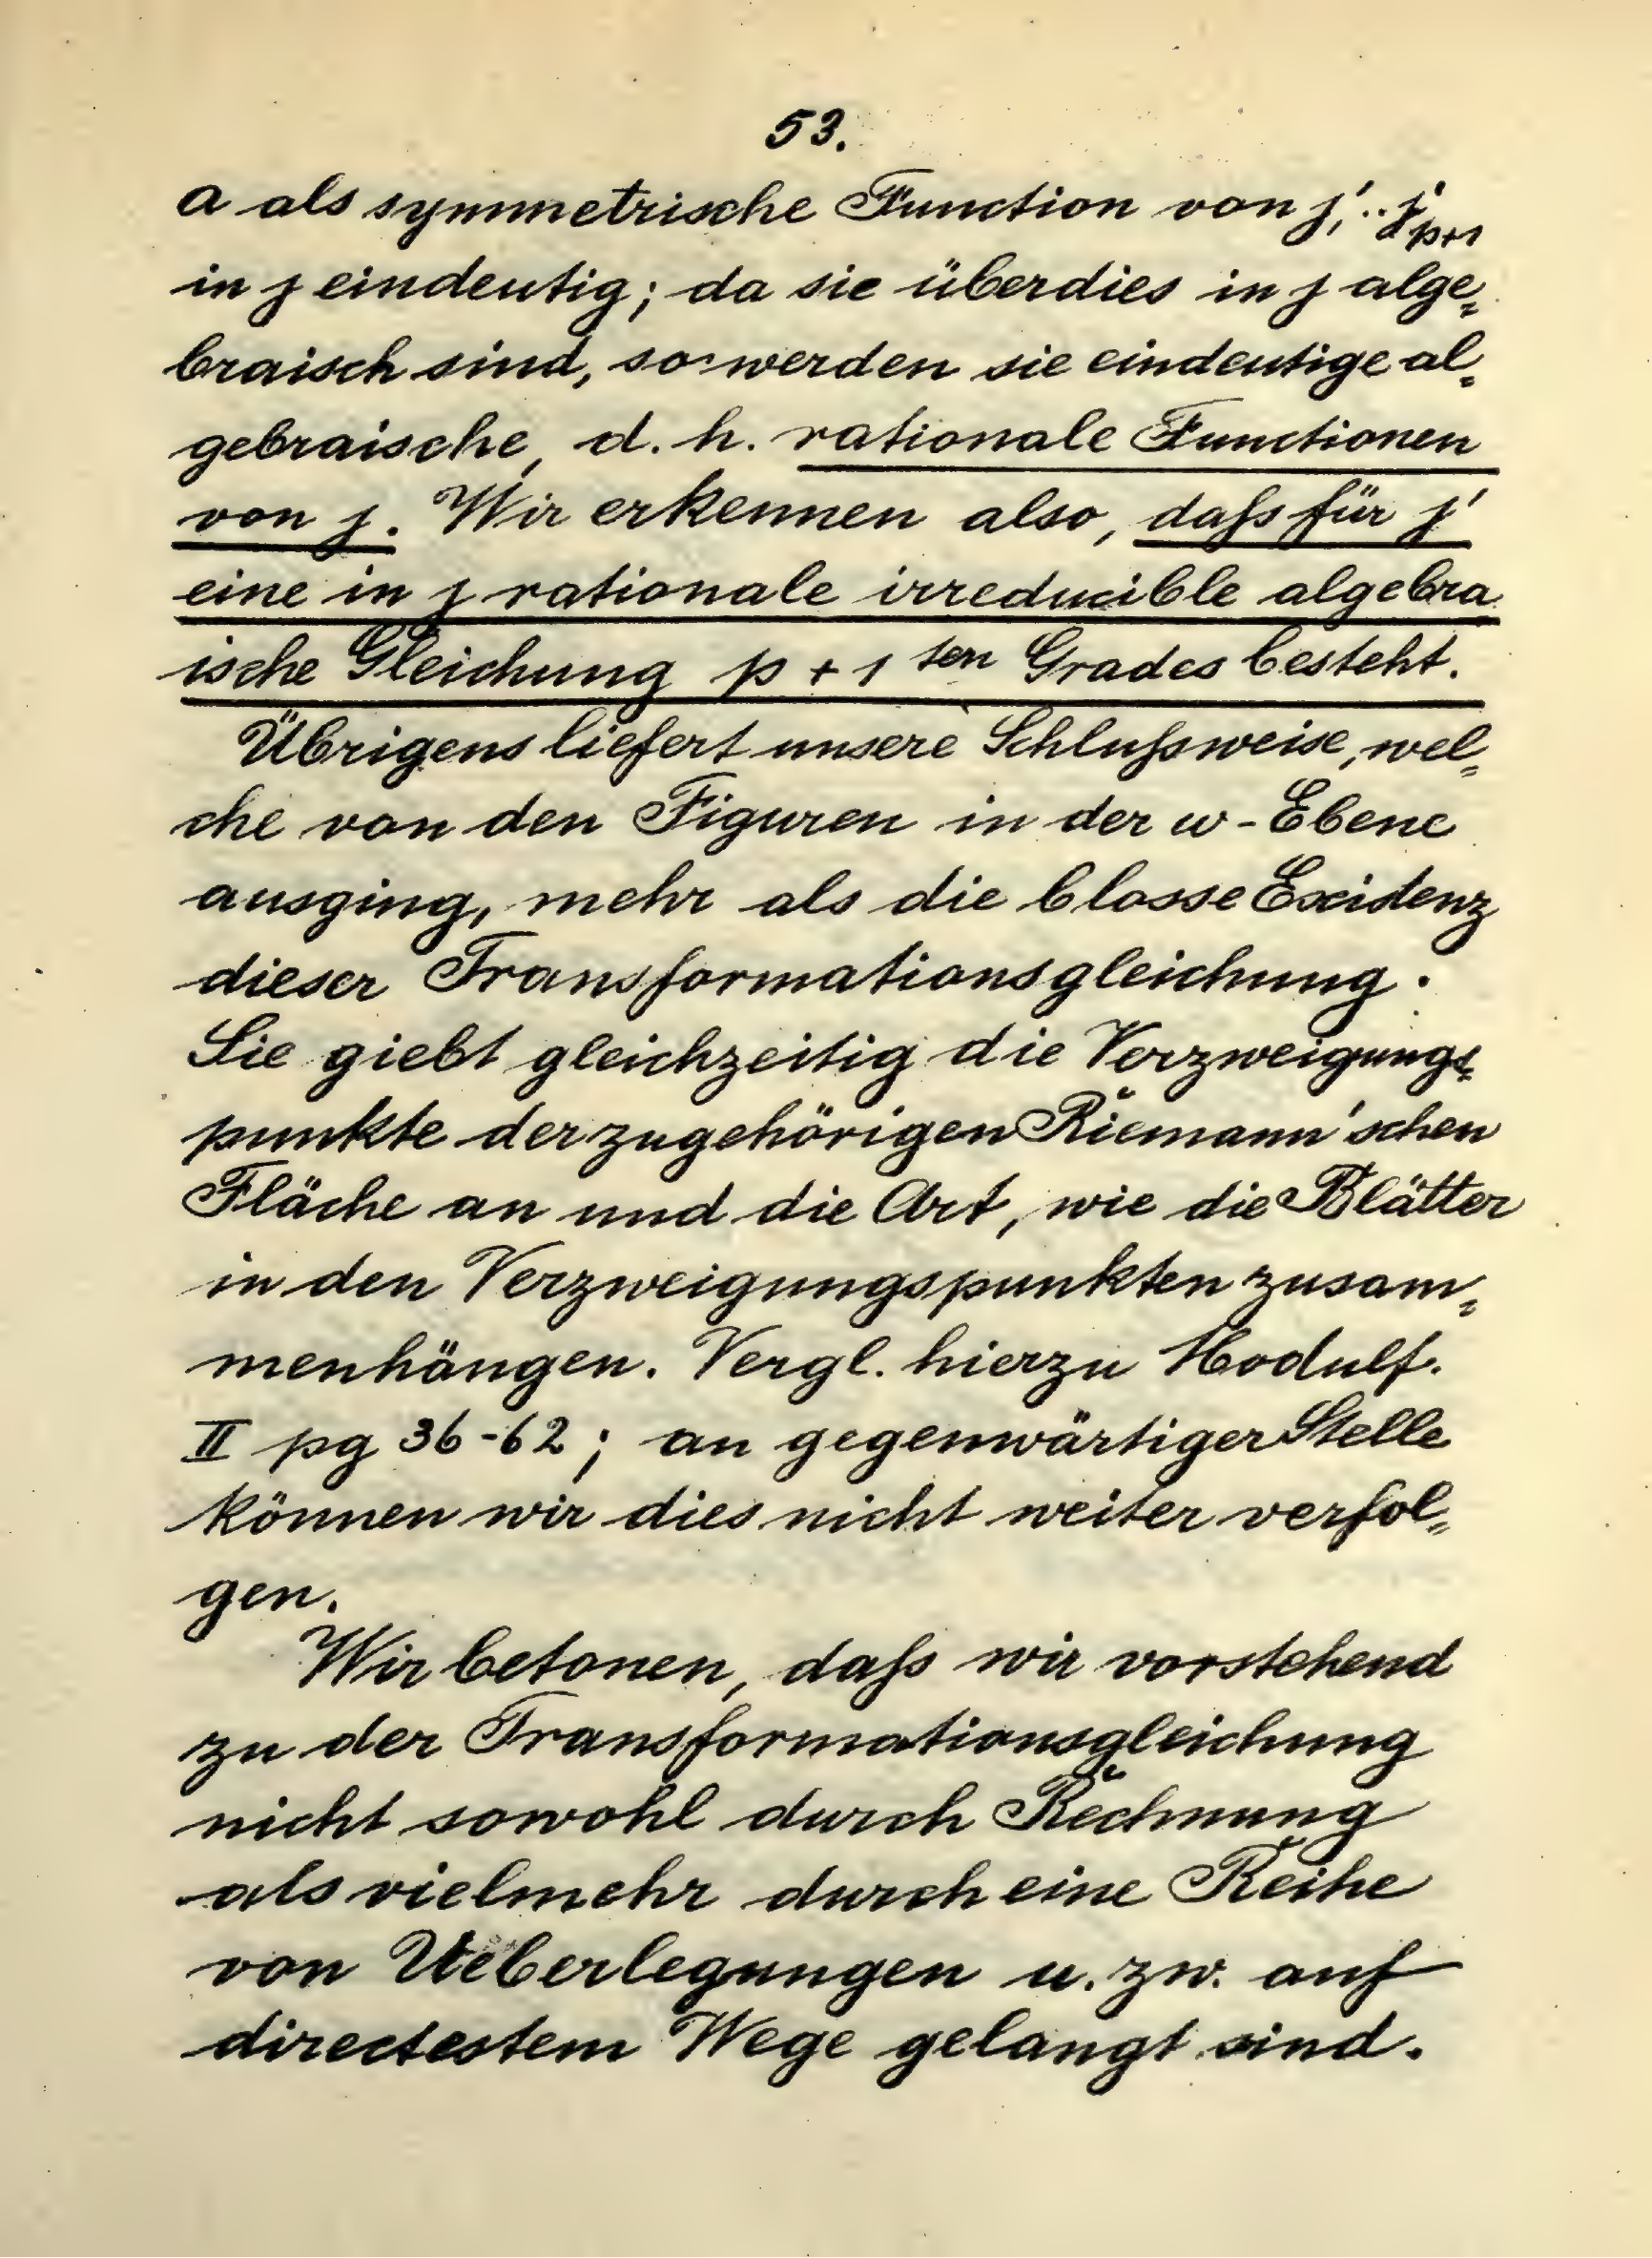 53.
a als symmetrische Function von j'₁ ·· j'ₚ₊₁
in j eindeutig; da sie überdies in j alge₌
braisch sind, so werden sie eindeutige al₌
gebraische, d. h. rationale Functionen
von j. Wir erkennen also, daſs für j'
eine in j rationale irreducible algebra
ische Gleichung p + 1 ten Grades besteht.
Übrigens liefert unsere Schluſsweise, wel₌
che von den Figuren in der ω-Ebene
ausging, mehr als die blosse Existenz
dieser Transformationsgleichung.
Sie giebt gleichzeitig die Verzweigungs₌
punkte der zugehörigen Riemann'schen
Fläche an und die Art, wie die Blätter
in den Verzweigungspunkten zusam₌
menhängen. Vergl. hierzu Modulf.
II pg 36-62; an gegenwärtiger Stelle
können wir dies nicht weiter verfol₌
gen.
Wir betonen, daſs wir vorstehend
zu der Transformationsgleichung
nicht sowohl durch Rechnung
als vielmehr durch eine Reihe
von Ueberlegungen u. zw. auf
directestem Wege gelangt sind.